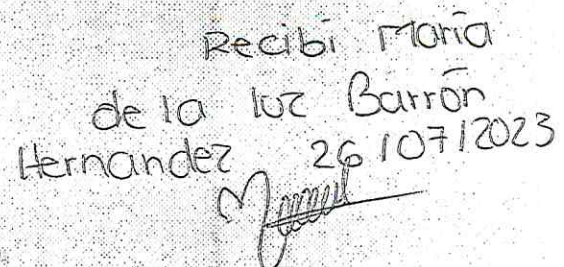 Recibi Maria
de la luz Barrón
Hernandez 26/07/2023